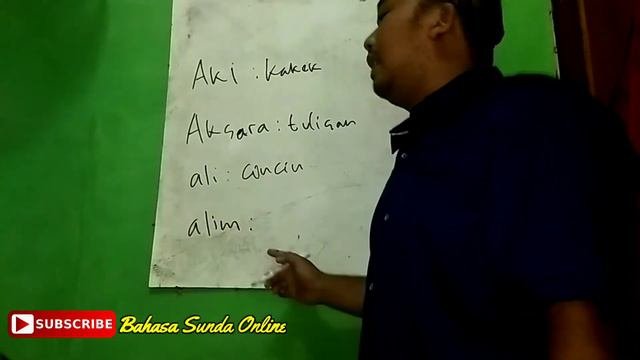 Aki : kakek
Aksara : tulisan
ali : cincin
alim :
SUBSCRIBE Bahasa Sunda Online